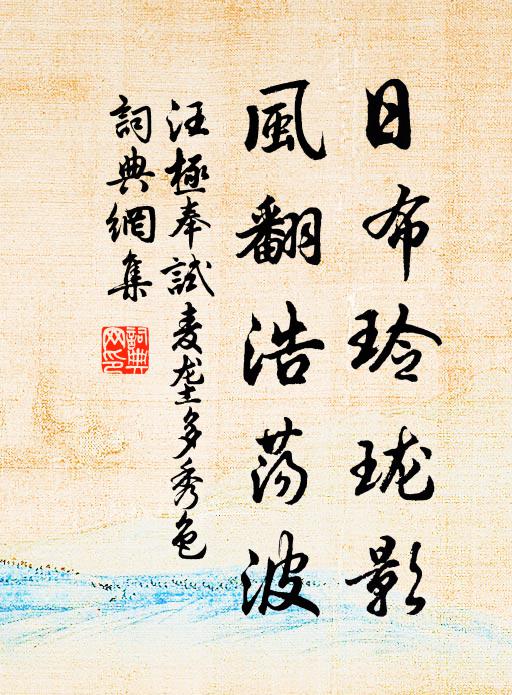 日布玲珑影
風翻浩荡波
汪極奉試麦垄多秀色
詞典網集
詞典網印